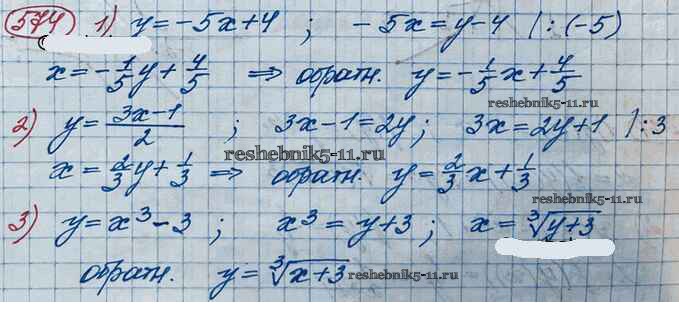 574 1) y = -5x + 4 ; -5x = y - 4 | : (-5)
x = -1/5 y + 4/5 ⇒ обратн. y = -1/5 x + 4/5
reshebnik5-11.ru
2) y = (3x-1)/2 ; 3x - 1 = 2y ; 3x = 2y + 1 | : 3
reshebnik5-11.ru
x = 2/3 y + 1/3 ⇒ обратн. y = 2/3 x + 1/3
reshebnik5-11.ru
3) y = x³ - 3 ; x³ = y + 3 ; x = ∛(y+3)
обратн. y = ∛(x+3)
reshebnik5-11.ru